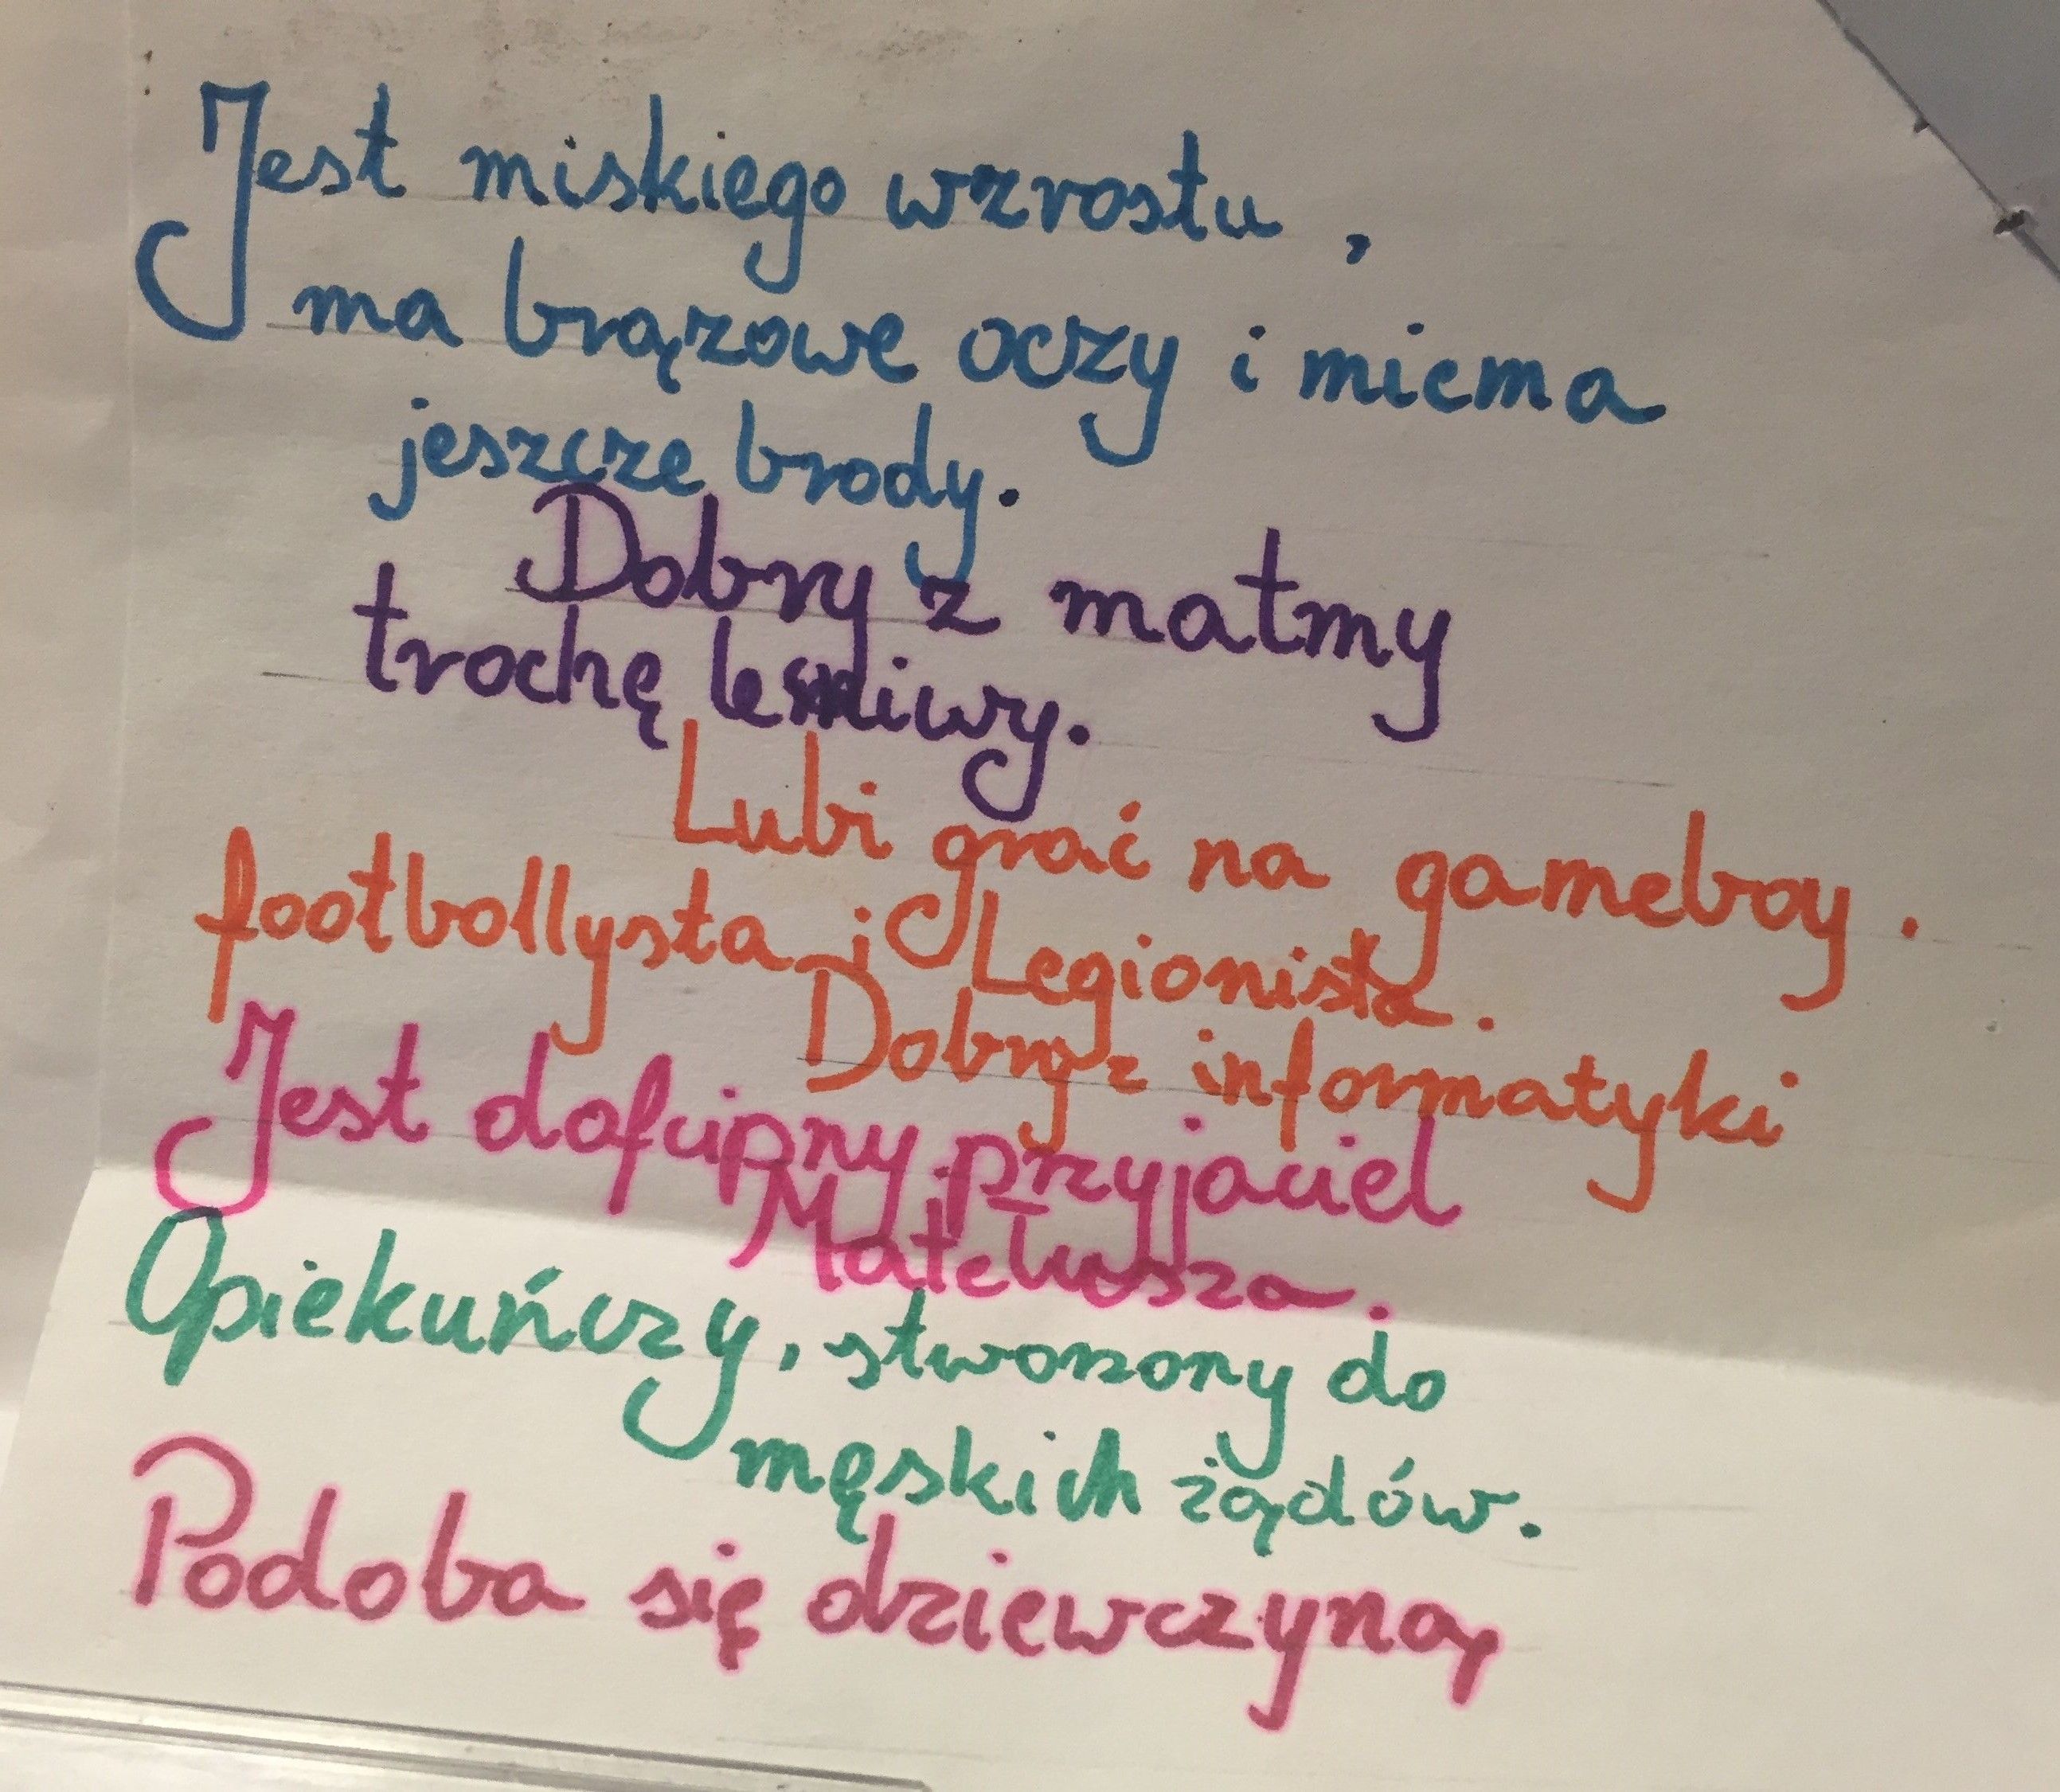 Jest niskiego wzrostu,
ma brązowe oczy i niema
jeszcze brody.
Dobry z matmy
trochę leniwy.
Lubi grać na gameboy.
footbollysta i Legionista.
Dobry z informatyki
Jest dofcipny. przyjaciel
Mateusza.
Opiekuńczy, stworzony do
męskich żądów.
Podoba się dziewczyną